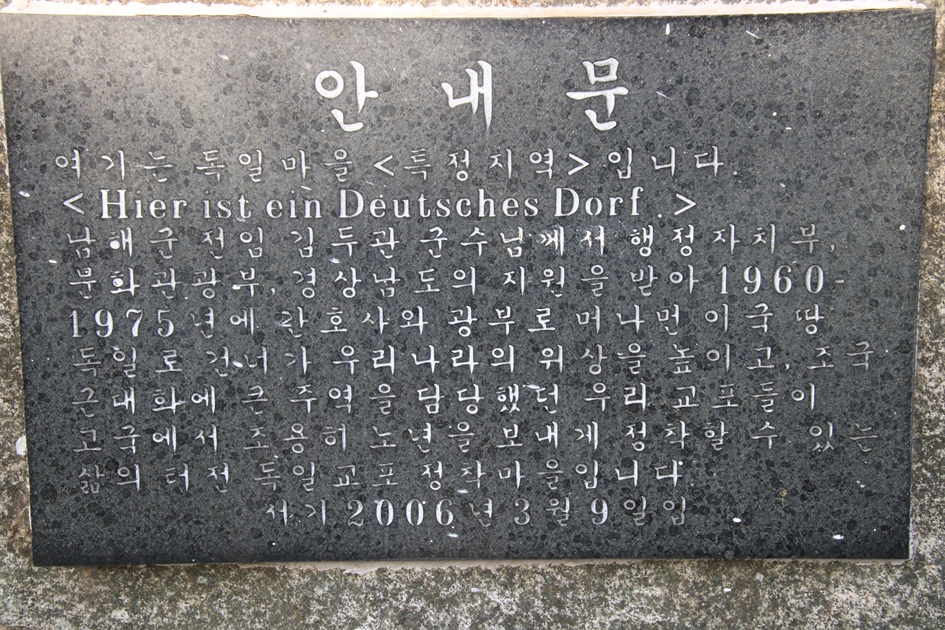 안내문
여기는 독일마을 <특정지역> 입니다
<Hier ist ein Deutsches Dorf .>
남해군 전임 김두관 군수님께서 행정자치부,
문화관광부, 경상남도의 지원을 받아 1960-
1975년에 간호사와 광부로 머나먼 이국 땅
독일로 건너가 우리나라의 위상을 높이고, 조국
근대화에 큰 주역을 담당했던 우리 교포들이
고국에서 조용히 노년을 보내게 정착할 수 있는
삶의 터전 독일교포 정착마을입니다.
서기 2006년 3월 9일입